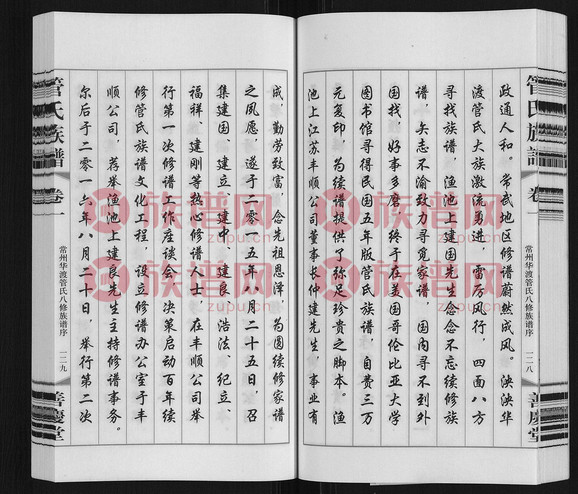 管氏族譜
卷一
常州华渡管氏八修族谱序
一二八
善慶堂
政通人和。常武地区修谱蔚然成风。泱泱华
渡管氏大族激流勇进，雷厉风行，四面八方
寻找族谱，渔池上建国先生念念不忘续修族
谱，矢志不渝致力寻觅家谱，国内寻不到外
国找，好事多磨，终于在美国哥伦比亚大学
图书馆寻得民国五年版管氏族谱，自费三万
元复印，为续谱提供了弥足珍贵之脚本。渔
池上江苏丰顺公司董事长仲建先生，事业有
成，勤劳致富，念先祖恩泽，为圆续修家谱
之夙愿，遂于二零一五年八月二十五日，召
集建国、建立、建中、建良、浩法、纪立、
福祥、建刚等热心修谱人士，在丰顺公司举
行第一次修谱工作座谈会，决策启动百年续
修管氏族谱文化工程，设立修谱办公室于丰
顺公司，荐举渔池上建良先生主持修谱事务。
尔后于二零一六年八月二十日，举行第二次
管氏族譜
卷一
常州华渡管氏八修族谱序
一二九
善慶堂
族谱网
zupu.cn
族谱网
zupu.cn
族谱网
zupu.cn
族谱网
zupu.cn